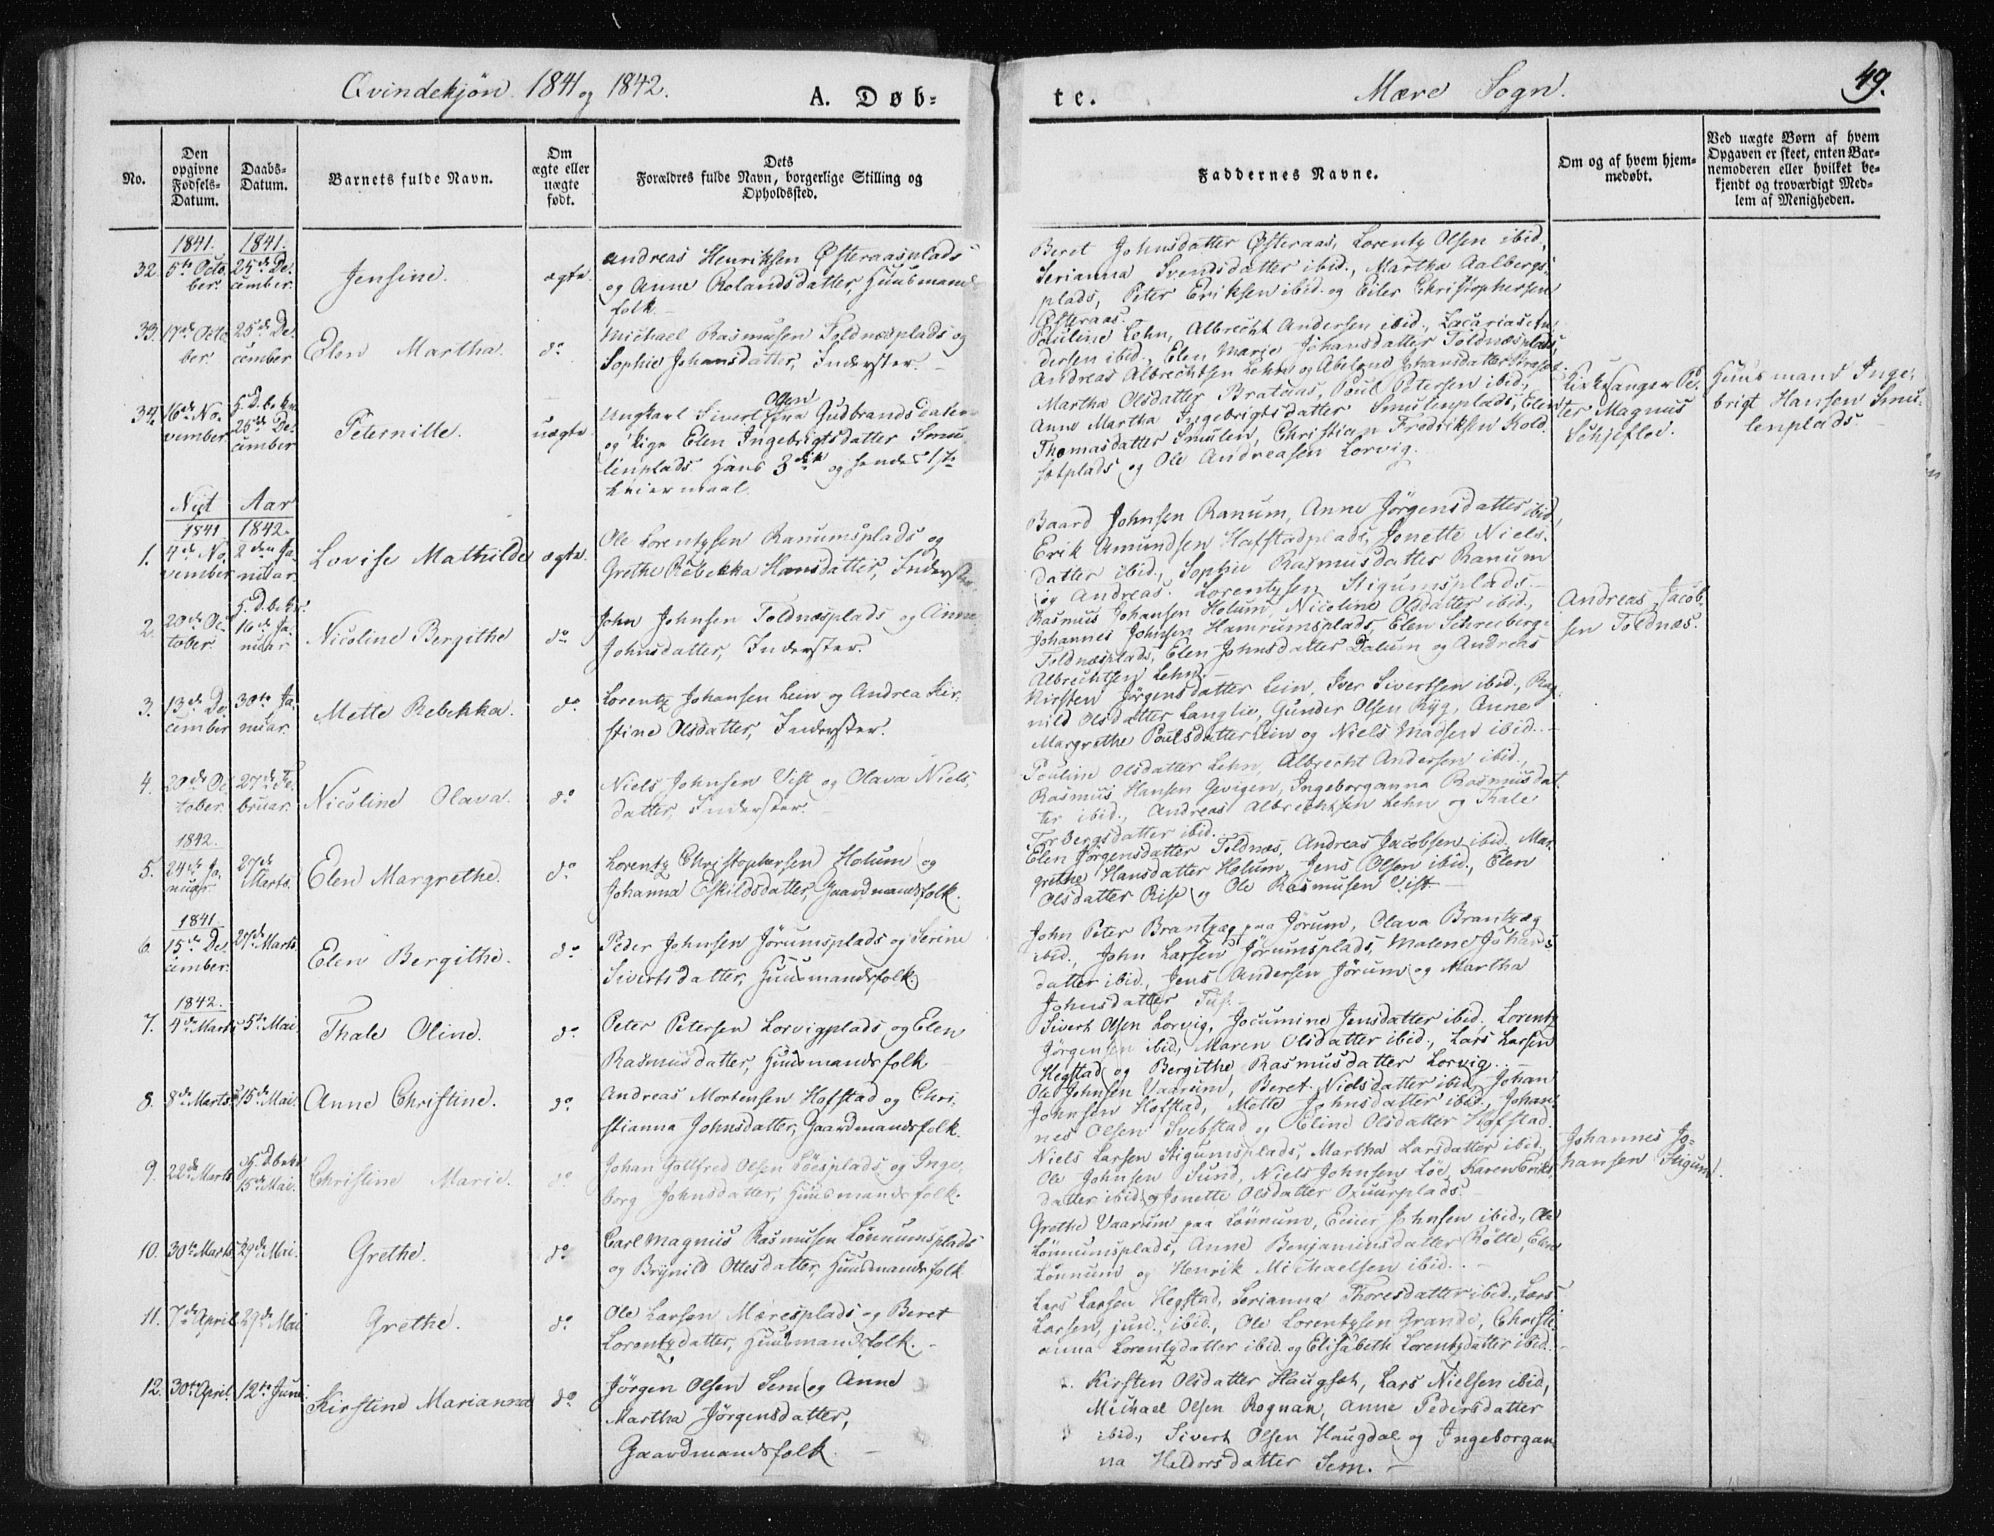 Qvindekjøn 1841 og 1842.
A. Døb-
te.
Mære Sogn.
49.
No.
Den opgivne Fødsels-Datum.
Daabs-Datum.
Barnets fulde Navn.
Om ægte eller uægte født.
Dets Forældres fulde Navn, borgerlige Stilling og Opholdssted.
Faddernes Navne.
Om og af hvem hjem-medøbt.
Ved uægte Børn af hvem Opgaven er skeet, enten Bar-nemoderen eller hvilket be-kjendt og troværdigt Med-lem af Menigheden.
1841. 1841.
32. 5te Octo-ber. 25de De-cember. Jensine. ægte.
Andreas Henriksen Østeraasplads
og Anne Rolandsdatter, Huusmands-
folk.
Beret Johnsdatter Østeraas, Lorentz Olsen ibid.,
Serianna Svendsdatter ibid., Martha Aalbergs-
plads, Peter Eriksen ibid. og Eiler Christophersen
Østeraas.
33. 17de Octo-ber. 25de De-cember Elen Martha. do
Michael Rasmusen Toldnæsplads og
Sophie Johansdatter, Inderster.
Pauline Lehn, Albrecht Andersen ibid., Zacarias An-
dersen ibid., Elen Marie Johansdatter Toldnæsplads,
Andreas Albrechtsen Lehn og Abelone Johansdatter
34. 16de No-vember 5. D. b. e. Kr. 25de De-cember Peternille. uægte
Ungkarl Sivert Olsen fra Gudbrandsdalen
og Pige Elen Ingebrigtsdatter Smu-
lenplads Hans 3die og hendes 1ste
Leiermaal.
Martha Olsdatter Brataas, Poul Petersen ibid.,
Anne Martha Ingebrigtsdatter Smulenplads, Elen
Thomasdatter Smulen, Christian Fredriksen Rold-
setplads og Ole Andreasen Lorvig.
Kirkesanger Pe-
ter Magnus
Schjefloe.
Huusmand Inge-
brigt Hansen Smu-
lenplads.
Nyt Aar
1841 1842.
1. 4de No-vember 2den Ja-nuar. Lovise Mathilde ægte.
Ole Lorentzsen Ranumsplads og
Grethe Rebekka Hansdatter, Inderster.
Baard Johnsen Ranum, Anne Jörgensdatter ibid,
Erik Amundsen Hafstadplads, Jonette Niels-
datter ibid., Sophie Rasmusdatter Ranum
og Andreas Lorentzsen Stigumsplads.
2. 20de Oc-tober. 5. D. b. e. Kr. 16de Ja-nuar Nicoline Bergithe do
John Johnsen Toldnæsplads og Anne
Johnsdatter, Inderster.
Rasmus Johansen Holum, Nicoline Olsdatter ibid.,
Johannes Johnsen Hamrumsplads, Elen Schreiberg
Toldnæsplads, Elen Johnsdatter Dalum og Andreas
Albrechtsen Lehn.
Andreas Jacob-
sen Toldnæs.
3. 13de De-cember 30te Ja-nuar. Mette Rebekka. do
Lorentz Johansen Lein og Andrea Kir-
stine Olsdatter, Inderster.
Kirsten Jörgensdatter Lein, Iver Sivertsen ibid., Rag-
nild Olsdatter Langlie, Gunder Olsen Ryg, Anne
Margrethe Poulsdatter Lein og Niels Madsen ibid.
4. 20de Oc-tober. 27de Fe-bruar. Nicoline Olava. do
Niels Johnsen Vist og Olava Niels-
datter, Inderster.
Pouline Olsdatter Lehn, Albrecht Andersen ibid.,
Rasmus Hansen Gevigen, Ingeborganna Rasmusdat-
ter ibid., Andreas Albrechtsen Lehn og Thale
Torbergsdatter ibid.
1842.
5. 24de Ja-nuar 27de Marts. Elen Margrethe. do
Lorentz Christophersen Holum og
Johanna Eskildsdatter, Gaardmandsfolk.
Elen Jörgensdatter Toldnæs, Andreas Jacobsen ibid, Mar-
grethe Hansdatter Holum, Jens Olsen ibid., Elen
Olsdatter Rise og Ole Rasmusen Vist.
1841.
6. 15de De-cember. 27de Marts Elen Bergithe. do
Peder Johnsen Jörumsplads og Serine
Sivertsdatter, Huusmandsfolk.
John Peter Brantzæg paa Jörum, Olava Brantzæg
ibid., John Larsen Jörumsplads, Malene Johans-
datter ibid., Jens Andersen Jörum og Martha
Johnsdatter Tuf.
1842.
7. 4de Marts 5te Mai Thale Oline. do
Peter Petersen Lorvigplads og Elen
Rasmusdatter, Huusmandsfolk
Sivert Olsen Lorvig, Jocumine Jensdatter ibid, Lorentz
Jörgensen ibid., Maren Olsdatter ibid., Lars Larsen
Hegstad og Bergithe Rasmusdatter Lorvig.
8. 8de Marts 15de Mai. Anne Christine. do
Andreas Mortensen Hofstad og Chri-
stianna Johnsdatter, Gaardmandsfolk.
Ole Johnsen Vaarum, Beret Nielsdatter ibid, Johan
Johnsen Hofstad, Mette Johnsdatter ibid., Johan-
nes Olsen Svebstad og Eline Olsdatter Hofstad.
9. 22de Marts 15de Mai. Christine Marie. do
Johan Gottfred Olsen Löesplads, og Inge-
borg Johnsdatter, Huusmandsfolk.
Niels Larsen Stigumsplads, Martha Larsdatter ibid,
Ole Johnsen Sund, Niels Johnsen Löe, Karen Eriks-
datter ibid. og Jonette Olsdatter Oxuurplads.
Johannes Jo-
hansen Stigum.
10. 30te Marts 29de Mai. Grethe. do
Carl Magnus Rasmusen Lönnumsplads
og Brynild Ottesdatter, Huusmandsfolk
Grethe Vaarum paa Lönnum, Einer Johnsen ibid., Ole
Lönnumsplads, Anne Benjaminsdatter Rölte, Elen
Lönnum og Henrik Michaelsen ibid.
11. 7de April 29de Mai Grethe. do
Ole Larsen Mæresplads og Beret
Lorentzdatter, Huusmandsfolk.
Lars Larsen Hegstad, Serianna Thoresdatter ibid., Lars
Larsen, jun., ibid., Ole Lorentzsen Grande, Christi-
anna Lorentzdatter ibid. og Elisabeth Lorentzdatter ibid.
12. 30te April. 12te Juni Kirstine Marianna do
Jörgen Olsen Sem og Anne
Martha Jörgensdatter,
Gaardmandsfolk.
Kirsten Olsdatter Haugset, Lars Nielsen ibid,
Michael Olsen Rognan, Anne Pedersdatter
ibid., Sivert Olsen Haugdal og Ingeborgan-
na Haldorsdatter Sem.